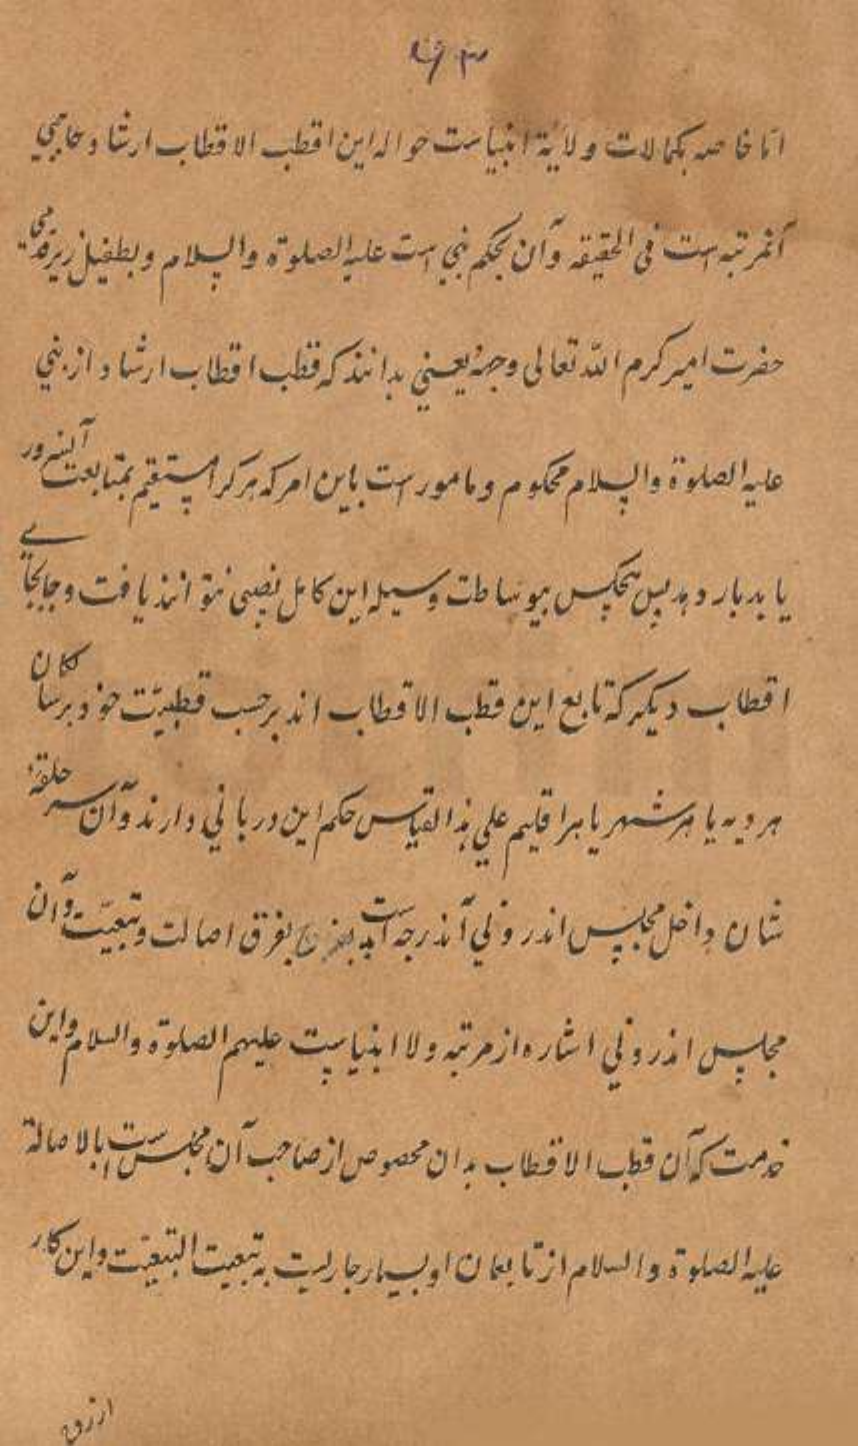 اما خاصه بکمالات ولایة انبیاست حواله این قطب الاقطاب ارشاد و حاجبی
آنمرتبه است فی الحقیقه و آن بحکم نبی است علیه الصلوة والسلام و بطفیل زیرقدمی
حضرت امیر کرم الله تعالی وجهه یعنی بدانند که قطب اقطاب ارشاد از نبی
علیه الصلوة والسلام محکوم و مامور است باین امر که هر کرا مستقیم بمتابعت آنسرور
یابد بار دهد پس هیچکس بیوساطت وسیله این کامل نصیبی نتوانند یافت و جابجای
اقطاب دیگر که تابع این قطب الاقطاب اند برحسب قطبیّت خود برساکنان
هر دیه یا هر شهر یا هر اقلیم علی هذا القیاس حکم این دربانی دارند و آن سر حلقهٔ
شان داخل مجلس اندرونی آندرجه است بفرق اصالت و تبعیّت و آن
مجلس اندرونی اشاره از مرتبه ولا انبیاست علیهم الصلوة والسلام و این
خدمت که آن قطب الاقطاب بدان مخصوص از صاحب آن مجلس است بالاصالة
علیه الصلوة والسلام از تابعان او بسیار جاریست به تبعیت التبعیّت و این کار